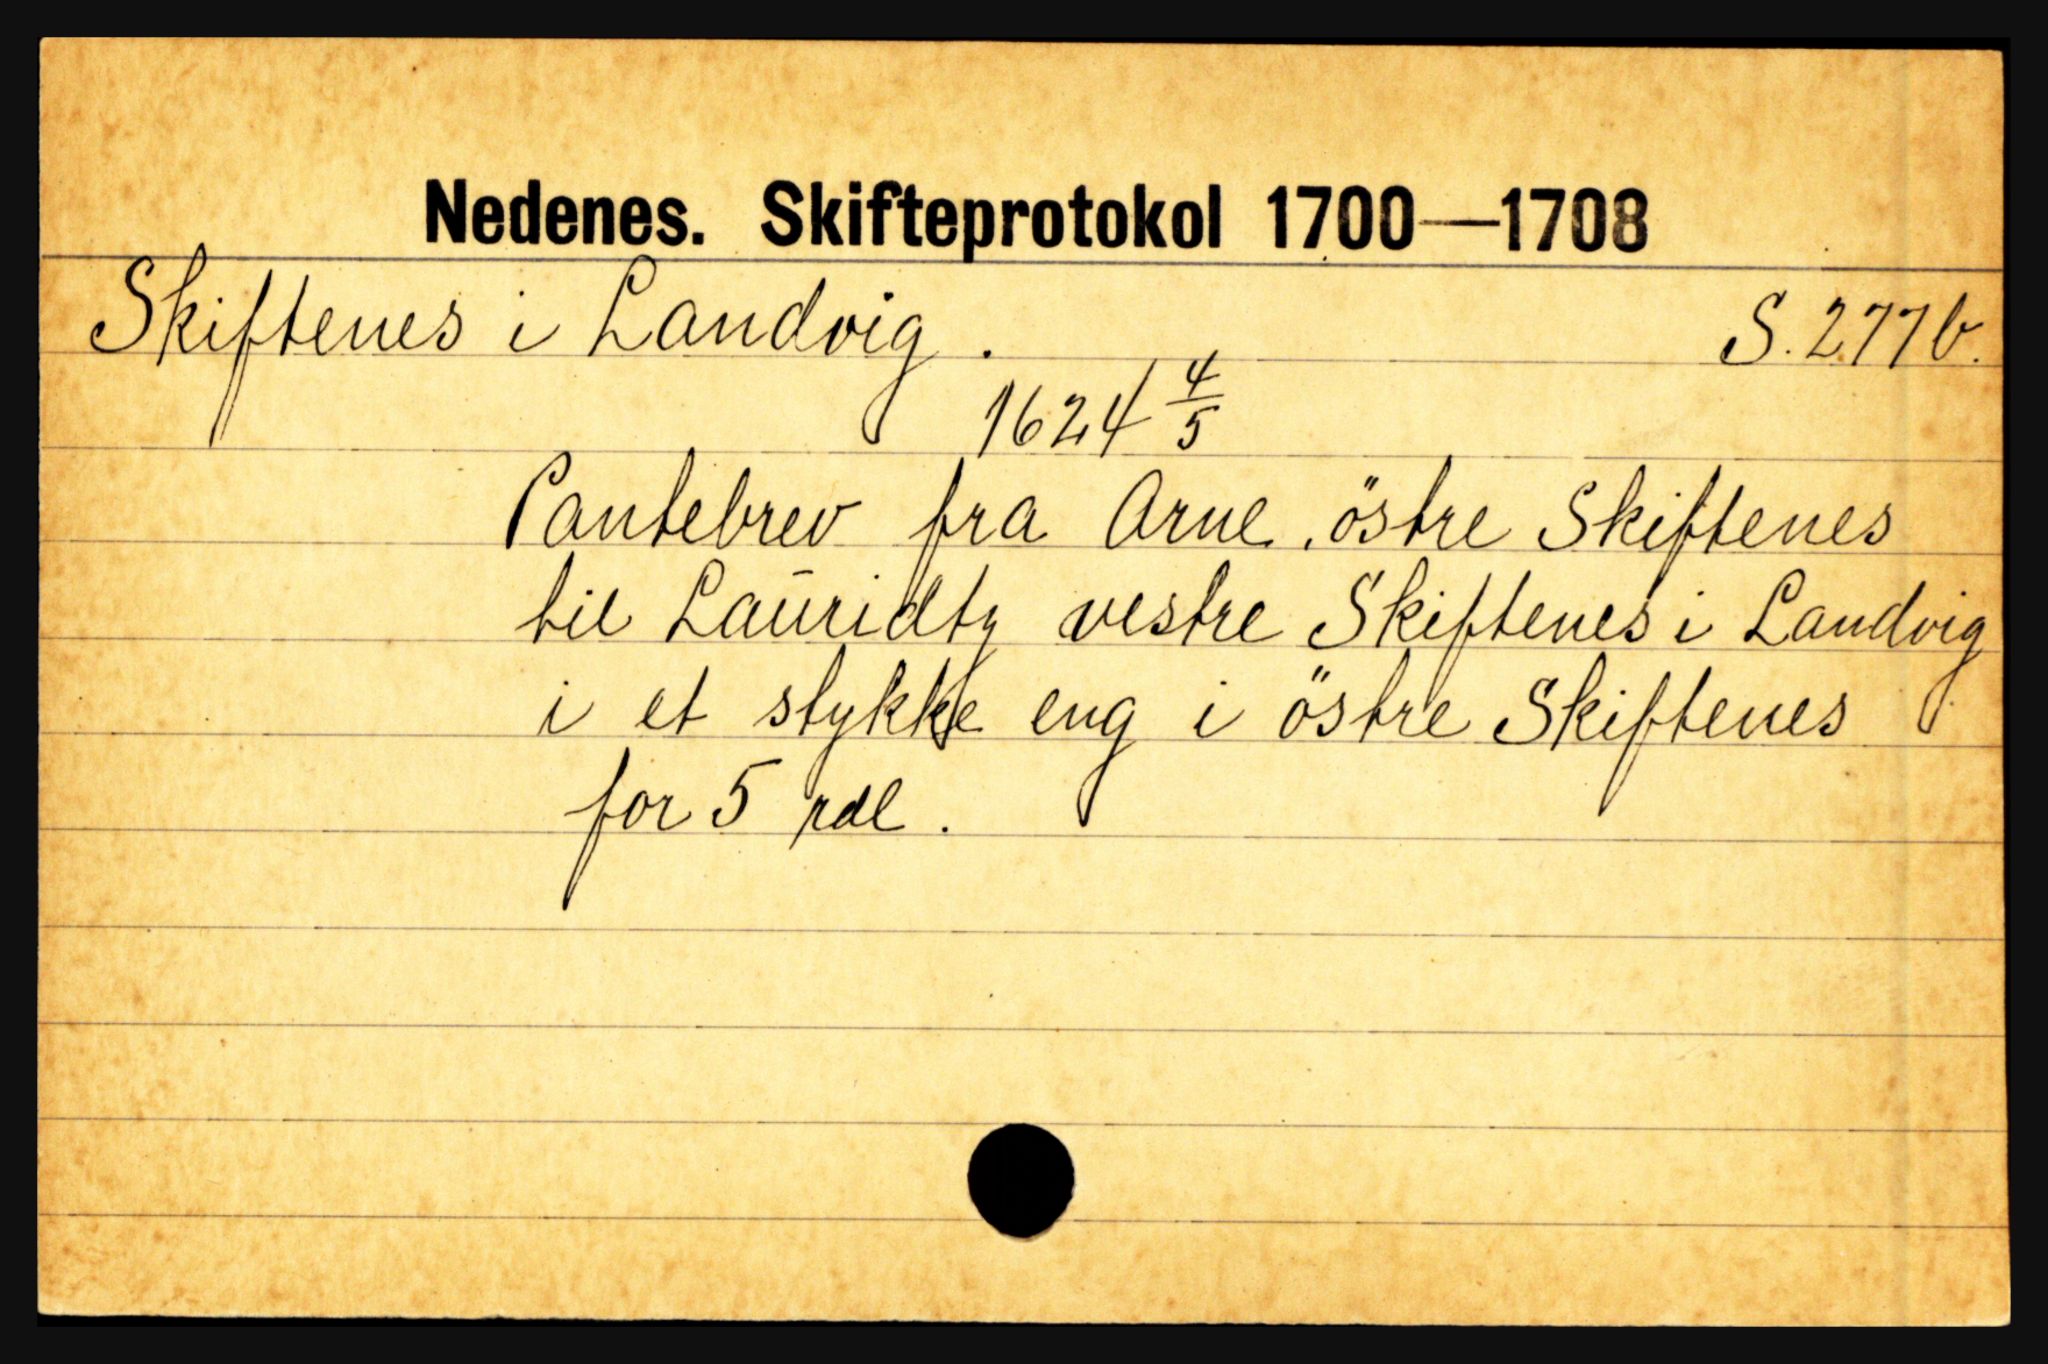 Nedenes. Skifteprotokol 1700—1708
Skiftenes i Landvig. S. 277b.
1624 4/5
Pantebrev fra Arne östre Skiftenes
til Lauridtz vestre Skiftenes i Landvig
i et stykke eng i östre Skiftenes
for 5 rdl.